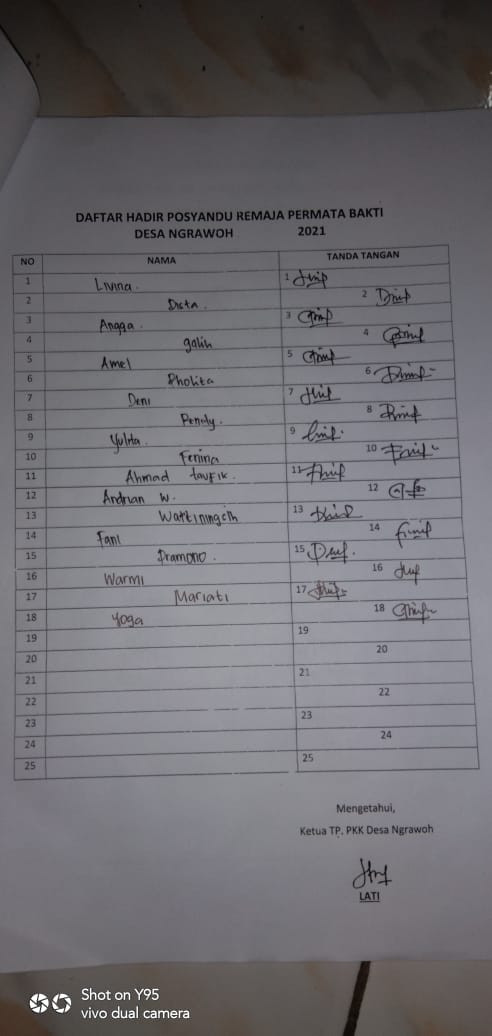 DAFTAR HADIR POSYANDU REMAJA PERMATA BAKTI
DESA NGRAWOH 2021
NO NAMA TANDA TANGAN
1 Livina. 1
2 Dista. 2
3 Angga. 3
4 galih 4
5 Amel 5
6 Pholita 6
7 Deni 7
8 Pendy. 8
9 Yulita. 9
10 Fenina 10
11 Ahmad taufik. 11
12 Andrian W. 12
13 13
14 Fani 14
15 Pramono. 15
16 Warmi 16
17 Mariati 17
18 Yoga 18
19 19
20 20
21 21
22 22
23 23
24 24
25 25
Mengetahui,
Ketua TP. PKK Desa Ngrawoh
LATI
Shot on Y95
vivo dual camera